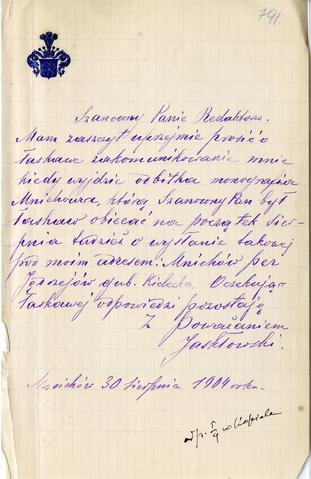 791.
Szanowny Panie Redaktorze.
Mam zaszczyt uprzejmie prosić o
łaskawe zakomunikowanie mnie
kiedy wyjdzie odbitka monografii
Mnichowa, którą Szanowny Pan był
łaskaw obiecać na początek sier-
pnia tudzież o wysłanie takowej
pod moim adresem: Mnichów per
Jędrzejów gub. Kielecka. Oczekując
łaskawej odpowiedzi pozostaję
z poważaniem
Jasktowski.
Mnichów 30 sierpnia 1904 roku.